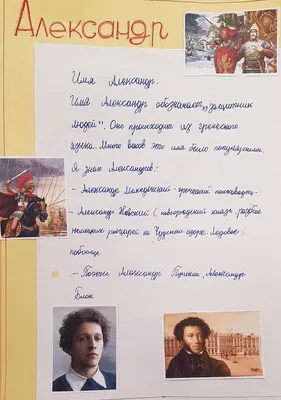 Александр
Имя Александр.
Имя Александр обозначает „защитник
людей". Оно происходит из греческого
языка. Много веков это имя было популярным.
Я знаю Александров:
- Александр Македонский - греческий полководец.
- Александр Невский (новгородский князь, разбив
немецких рыцарей на Чудском озере. Ледовое
побоище
- Поэты Александр Пушкин, Александр
Блок